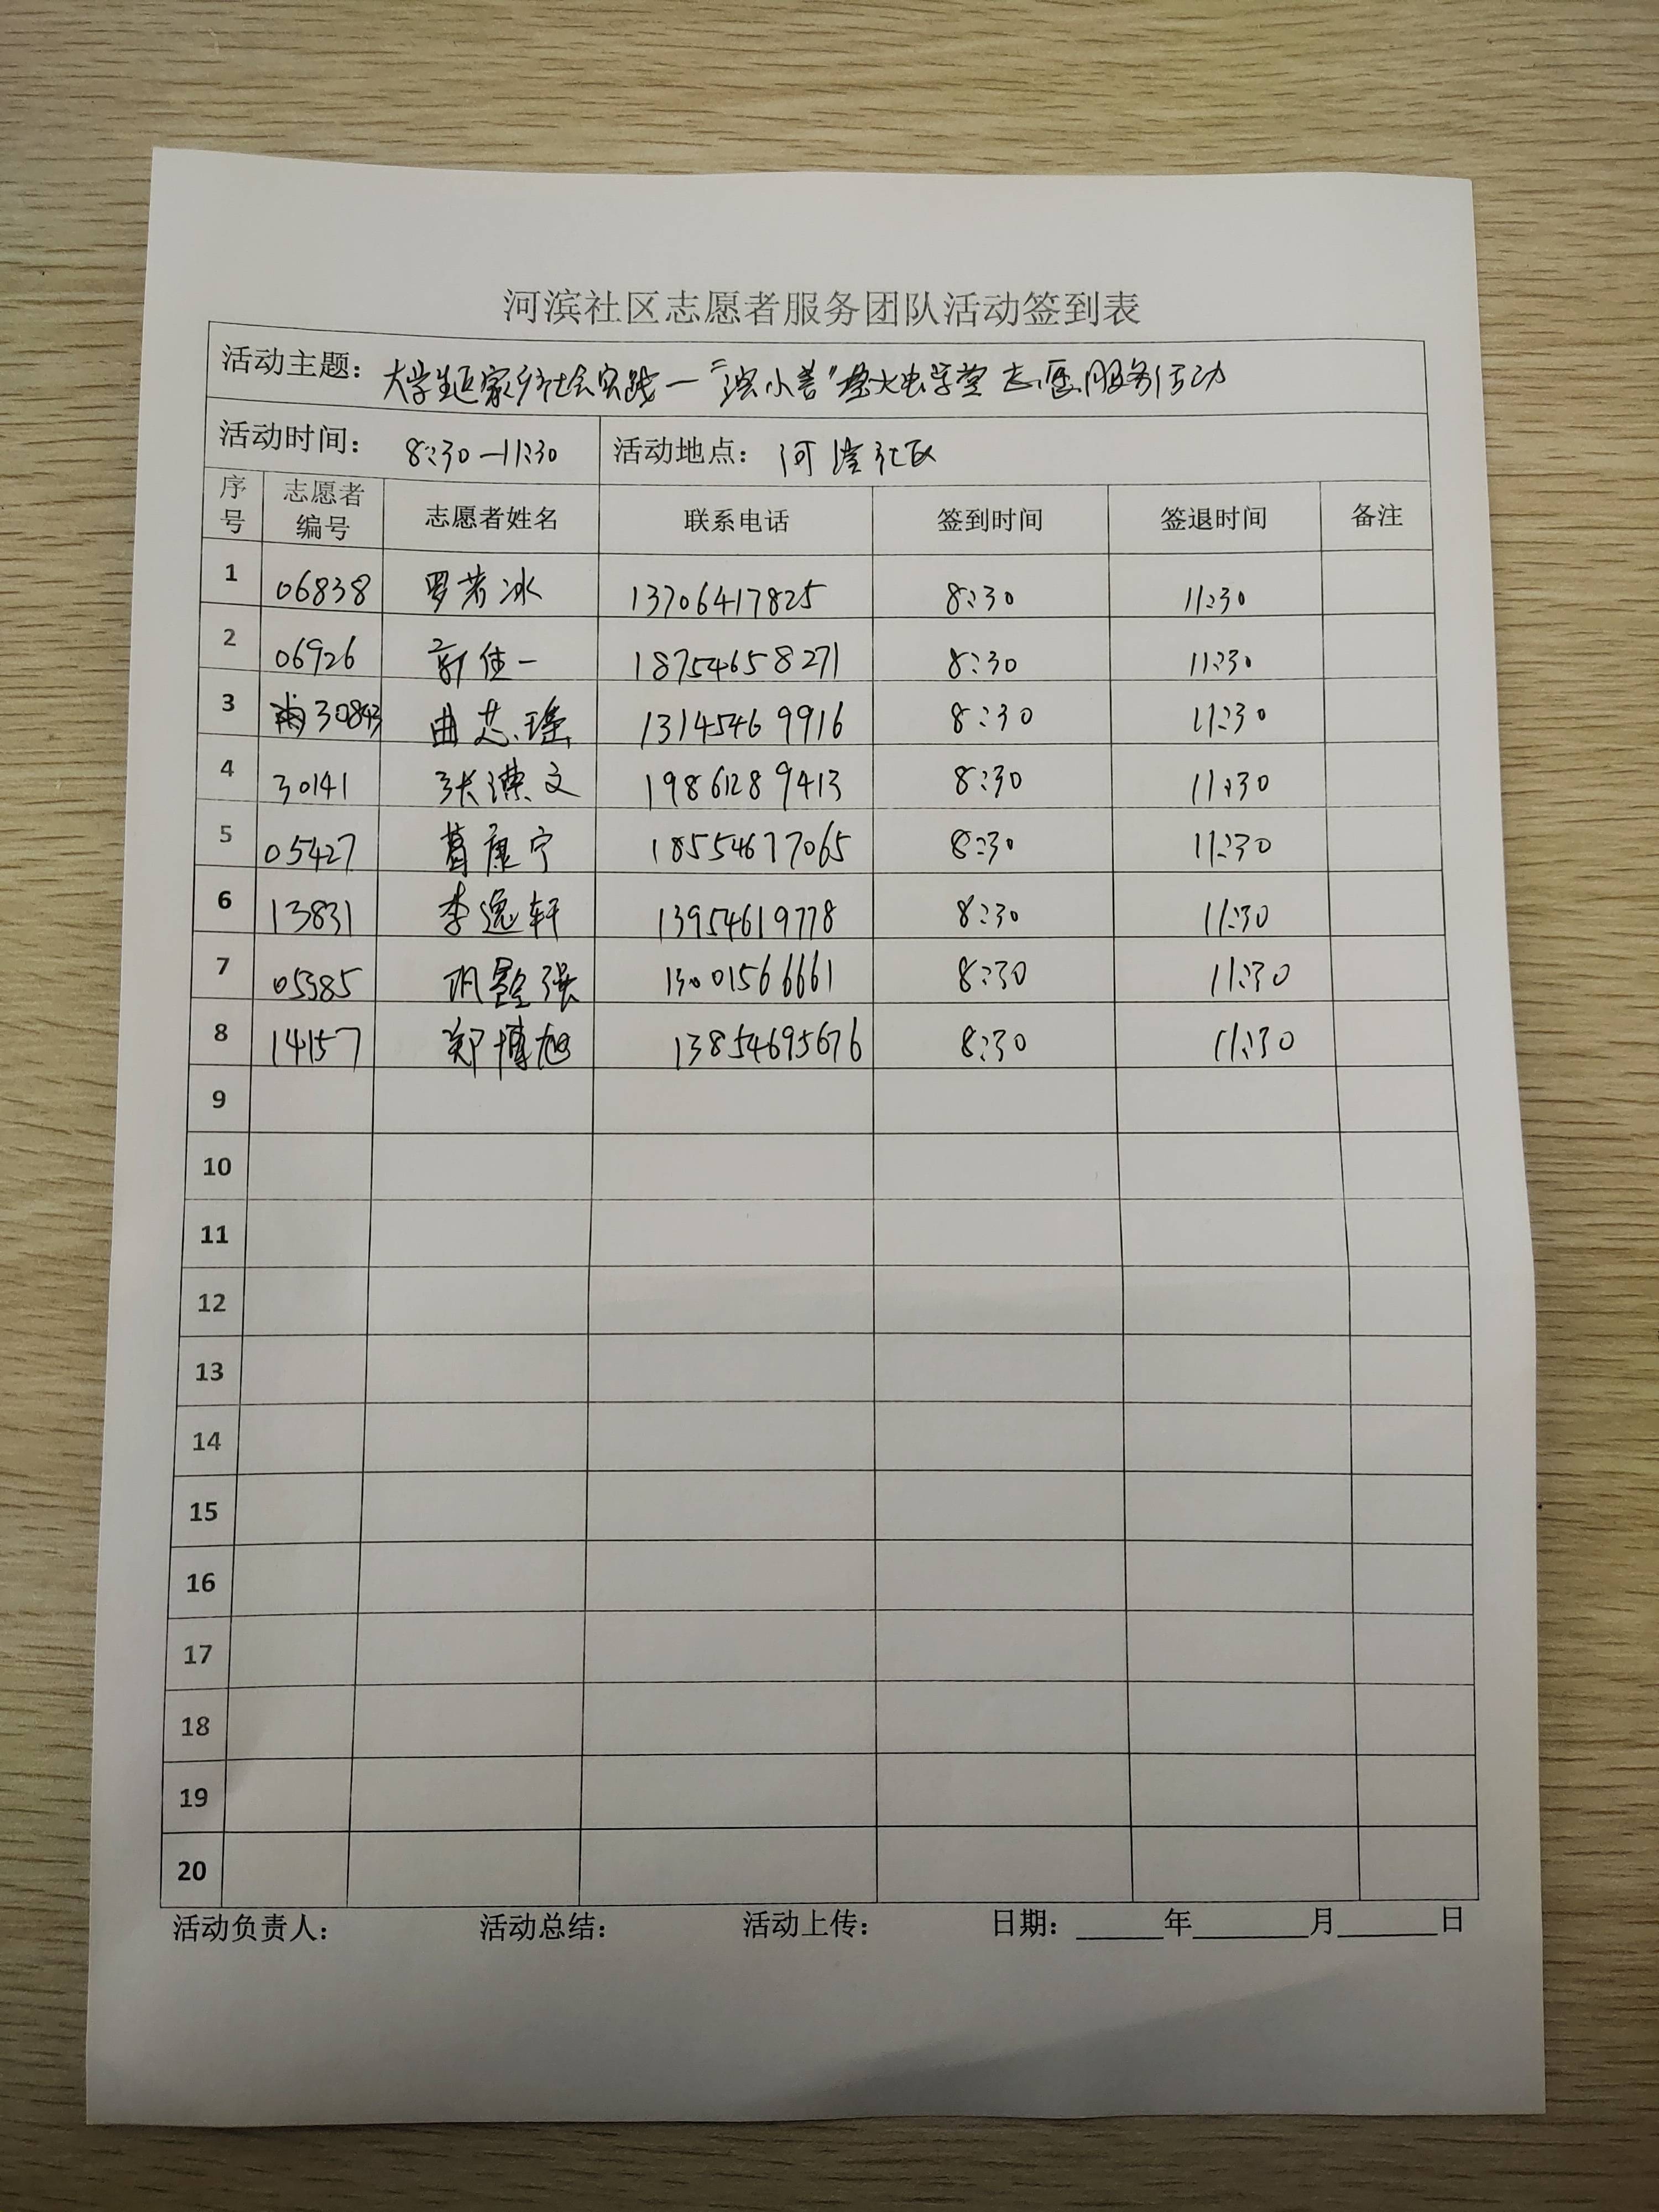 河滨社区志愿者服务团队活动签到表
活动主题: 大学生返家乡社会实践—"滨小善"萤火虫学堂 志愿服务活动
活动时间: 8:30—11:30 活动地点: 河滨社区
序号 志愿者编号 志愿者姓名 联系电话 签到时间 签退时间 备注
1 06838 罗若冰 13706417825 8:30 11:30
2 06926 靳佳一 18754658271 8:30 11:30
3 30843 曲芯瑶 13145469916 8:30 11:30
4 30141 张潇文 19861289413 8:30 11:30
5 05427 葛康宁 18554677065 8:30 11:30
6 13831 李逸轩 13954619778 8:30 11:30
7 05385 巩 强 13001566661 8:30 11:30
8 14157 郑博旭 13854695676 8:30 11:30
9
10
11
12
13
14
15
16
17
18
19
20
活动负责人: 活动总结: 活动上传: 日期: ______年______月______日